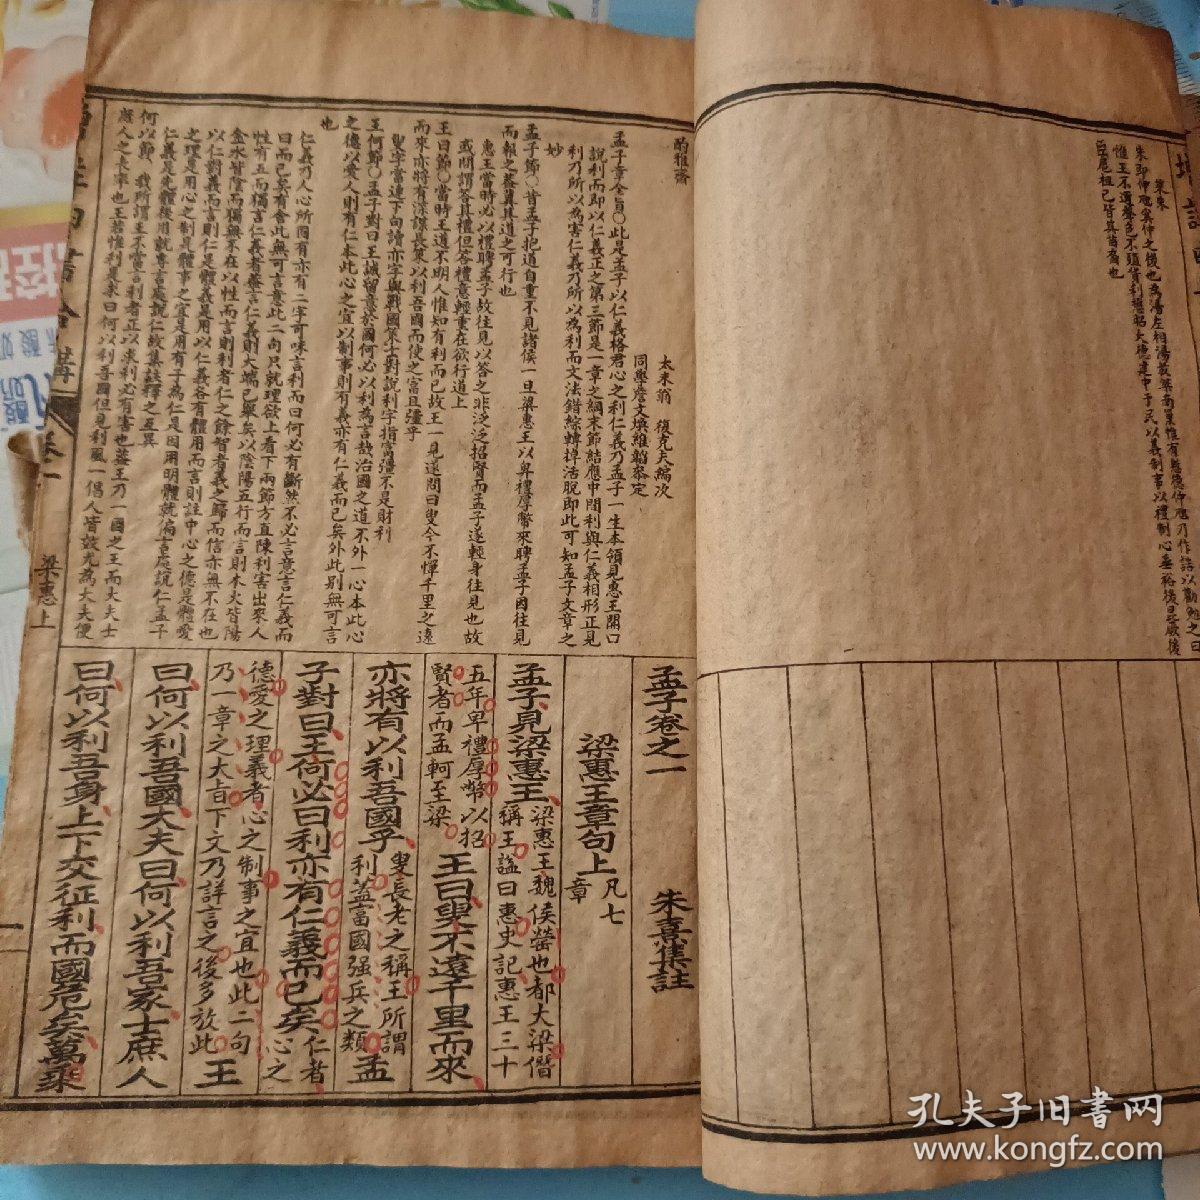 萊朱
孟子卷之一　朱熹集註
梁惠王章句上 凡七章
孟子見梁惠王 梁惠王魏侯罃也都大梁僭稱王謚曰惠史記惠王三十
五年卑禮厚幣以招賢者而孟軻至梁 王曰叟不遠千里而來
亦將有以利吾國乎 叟長老之稱王所謂利蓋富國强兵之類 孟
子對曰王何必曰利亦有仁義而已矣 仁者心之
德愛之理義者心之制事之宜也此二句乃一章之大旨下文乃詳言之後多放此 王
曰何以利吾國大夫曰何以利吾家士庶人
曰何以利吾身上下交征利而國危矣萬乘
酌雅齋
太末翁 復克夫編次
同學詹文煥維韜參定
孟子章全旨○此是孟子以仁義格君心之利仁義乃孟子一生本領見惠王開口
說利而即以仁義正之第三節是一章之綱末節結應中間利與仁義相形正見
利乃所以為害仁義乃所以為利而文法錯綜轉掉活脫即此可知孟子文章之
妙
孟子節○昔孟子抱道自重不見諸侯一旦梁惠王以卑禮厚幣來聘孟子因往見
而報之答冀其道之可行也
惠王當時必以禮聘孟子故往見以答之非泛泛招賢而孟子遂輕身往見也故
或問謂答其禮但答禮意輕重在欲行道上
王曰節○當時王道不明人惟知有利而已故王一見遂問曰叟今不憚千里之遠
而來亦將有深謀長策以利吾國而使之富且彊乎
叟字當連下句讀亦字與戰國策士對說利字指富彊不是財利
王何節○孟子對曰王誠留意於國何必以利為言哉治國之道不外一心本此心
之德以愛人則有仁本此心之宜以制事則有義亦有仁義而已矣外此別無可言
也
仁義乃人心所固有亦有二字可味言利而曰何必有斷然不必言意言仁義而
曰而已矣有舍此無可言意此二句只就理欲上看下兩節方直陳利害出來人
性有五而獨言仁義者蓋言仁義則大端已舉矣以陰陽五行而言則木火皆陽
金水皆陰而獨無不在以性而言則利者仁之餘智者義之歸而信亦無不在也
以仁對義而言則仁是體義是用以仁義各有體用而言則註中心之德是體愛
之理是用心之制是體事之宜是用有子為仁是因用明體就偏言處說仁孟子
仁義是先體後用就專言處說仁故集註釋之互異
何以節 我所謂王不當言利者正以求利必有害也蓋王乃一國之王而大夫士
庶人之表率也王若惟利是求曰何以利吾國但見利風一倡人皆效尤為大夫便
卷一
梁惠上
一
孔夫子旧书网
www.kongfz.com